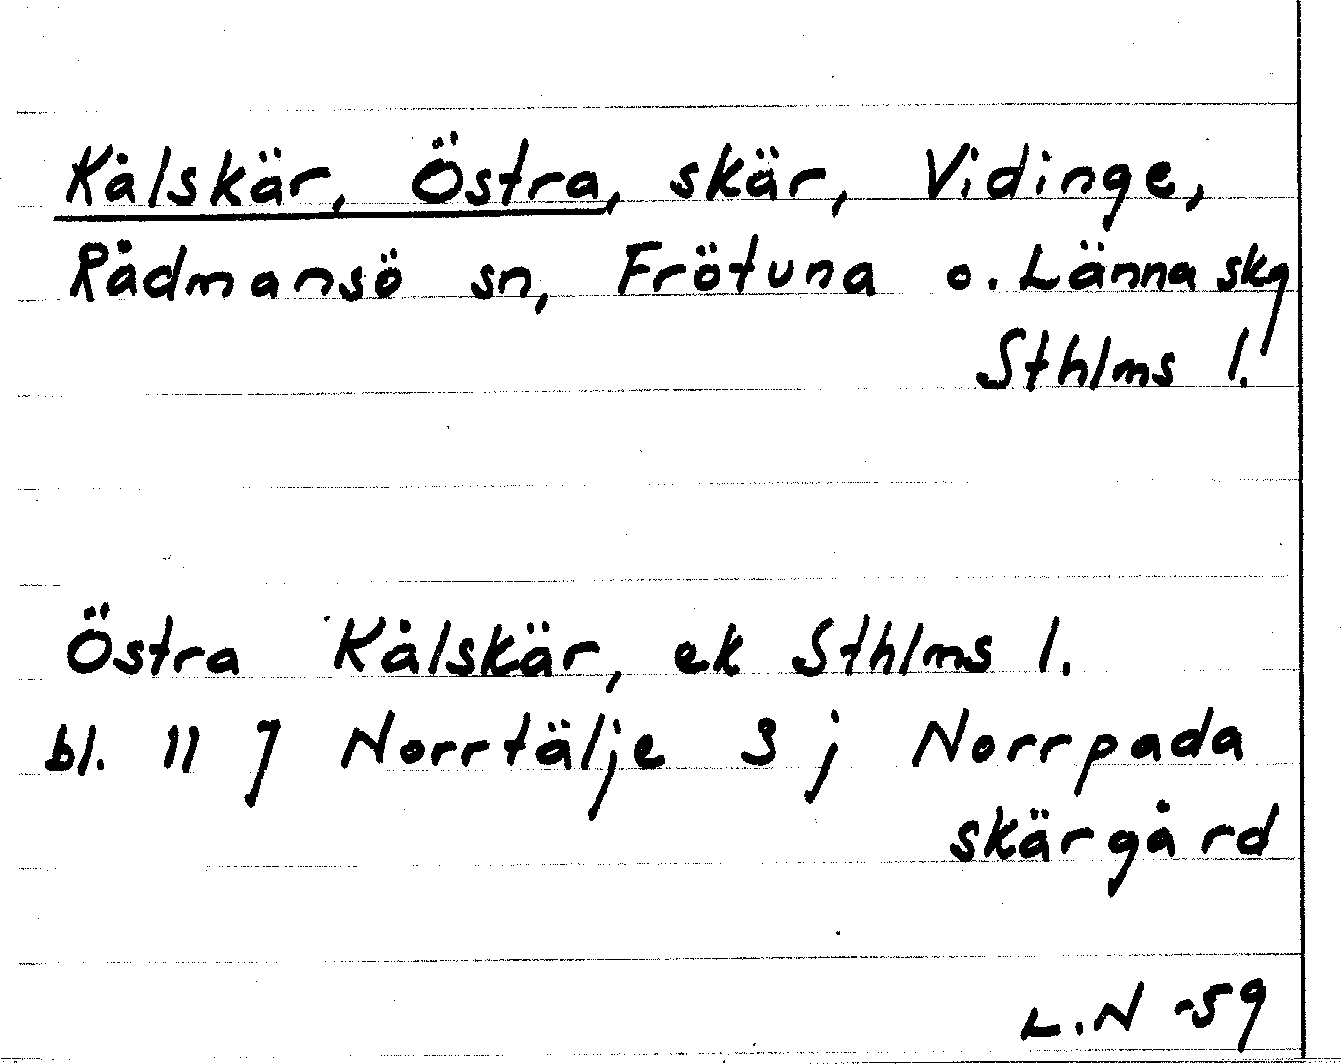 Kålskär, Östra, skär, Vidinge,
Rådmansö sn, Frötuna o. Länna skg
Sthlms l.
Östra Kålskär, ek Sthlms l.
bl. 11 J Norrtälje 3 j Norrpada
skärgård
L.N -59